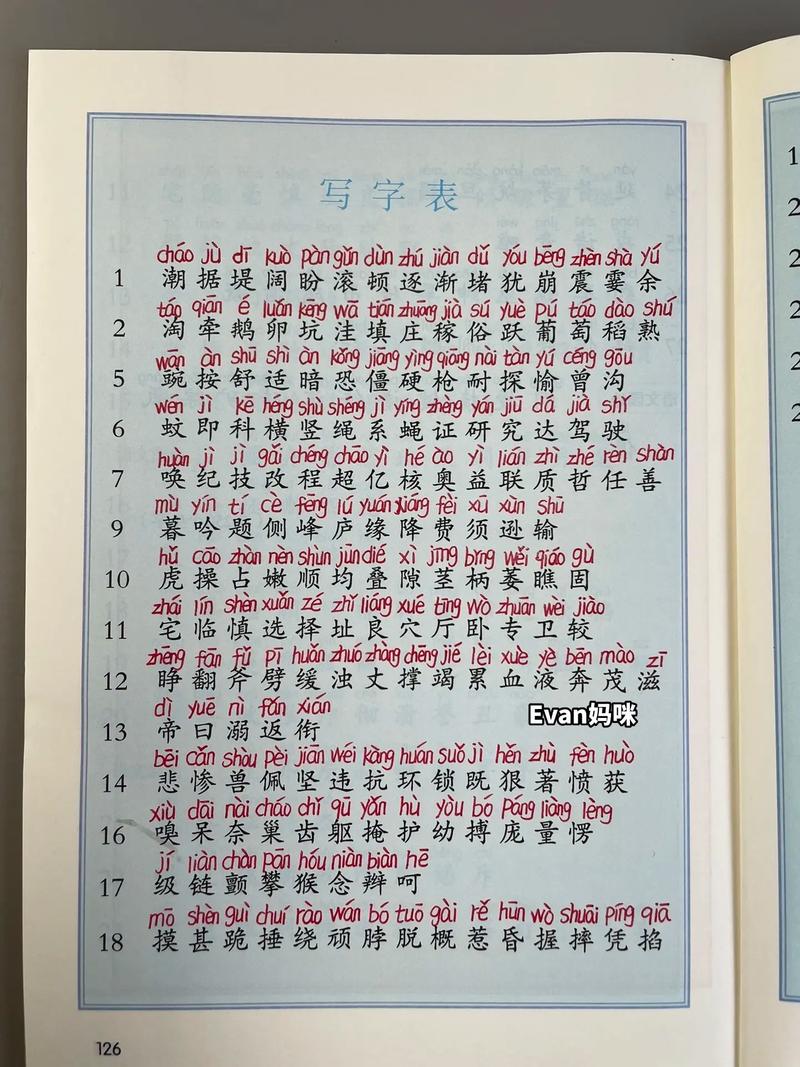 写字表
cháo jù dī kuò pàn gǔn dùn zhú jiàn dǔ yóu bēng zhèn shà yú
1 潮据堤阔盼滚顿逐渐堵犹崩震霎余
táo qiān é luǎn kēng wā tián zhuāng jià sú yuè pú táo dào shú
2 淘牵鹅卵坑洼填庄稼俗跃葡萄稻熟
wān àn shū shì àn kǒng jiāng yìng qiāng nài tàn yú céng gōu
5 豌按舒适暗恐僵硬枪耐探愉曾沟
wén jì kē héng shù shéng jì yíng zhèng yán jiū dá jià shǐ
6 蚊即科横竖绳系蝇证研究达驾驶
huàn jì jì gǎi chéng chāo yì hé ào yì lián zhì zhé rèn shàn
7 唤纪技改程超亿核奥益联质哲任善
mù yín tí cè fēng lú yuán xiáng fèi xū xùn shū
9 暮吟题侧峰庐缘降费须逊输
hǔ cāo zhàn nèn shùn jūn dié xì jīng bǐng wěi qiáo gù
10 虎操占嫩顺均叠隙茎柄萎瞧固
zhái lín shèn xuǎn zé zhǐ liáng xué tīng wò zhuān wèi jiào
11 宅临慎选择址良穴厅卧专卫较
zhēng fān fǔ pī huǎn zhuó zhàng chēng jié lèi xuè yè bēn mào zī
12 睁翻斧劈缓浊丈撑竭累血液奔茂滋
dì yuē nì fǎn xián
13 帝曰溺返衔
Evan妈咪
bēi cǎn shòu pèi jiān wéi kàng huán suǒ jì hěn zhù fèn huò
14 悲惨兽佩坚违抗环锁既狠著愤获
xiù dāi nài cháo chǐ qū yǎn hù yòu bó páng liàng lèng
16 嗅呆奈巢齿躯掩护幼搏庞量愣
jí liàn chàn pān hóu niàn biàn hē
17 级链颤攀猴念辫呵
mō shèn guì chuí rào wán bó tuō gài rě hūn wò shuāi píng qiā
18 摸甚跪捶绕顽脖脱概惹昏握摔凭掐
126